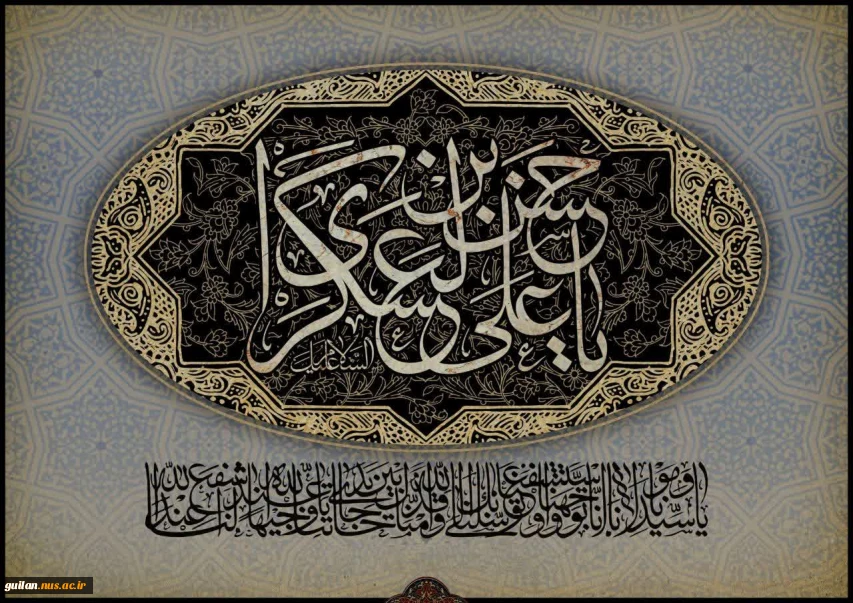 یا حسن بن علی العسکری
علیه السلام
یا سیدنا و مولانا انا توجهنا و استشفعنا و توسلنا بک الی الله و قدمناک بین یدی حاجاتنا یا وجیها عند الله اشفع لنا عند الله
guilan.nus.ac.ir